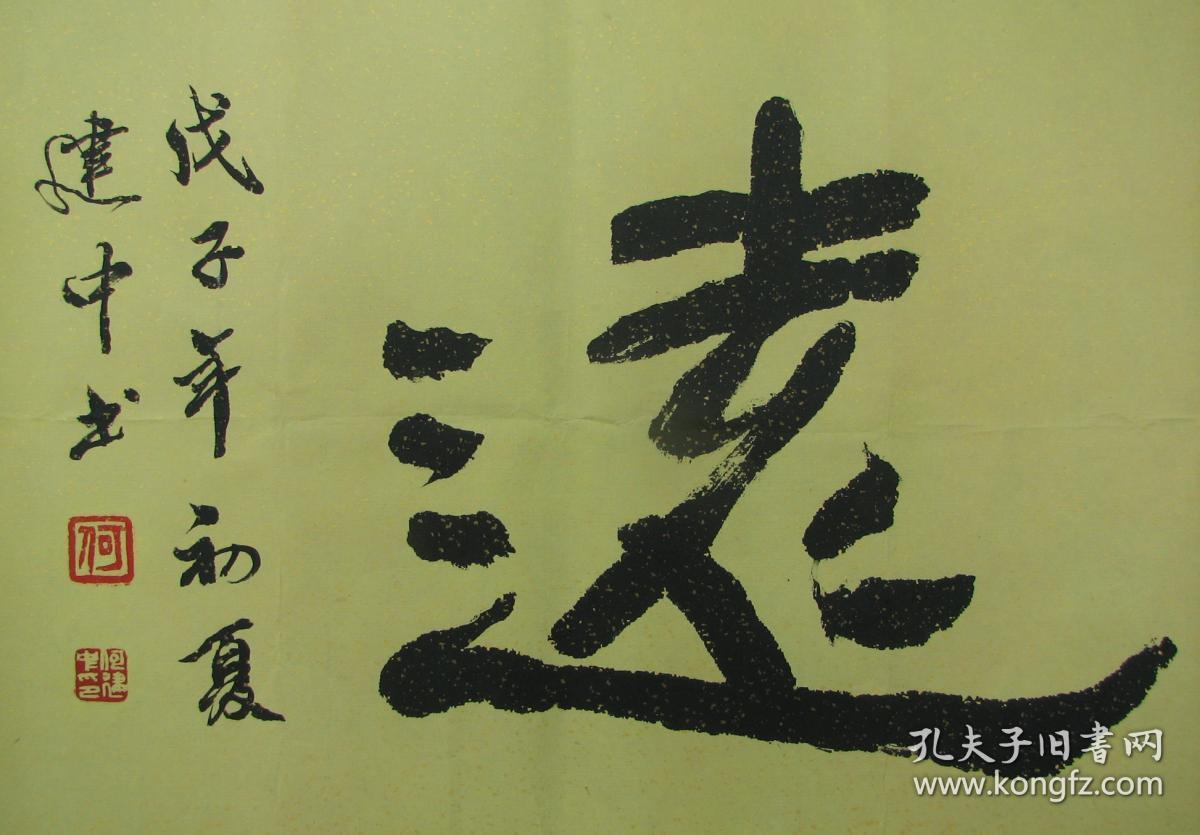 遠
戊子年初夏
建中书
何
何建中印
孔夫子旧書网
www.kongfz.com